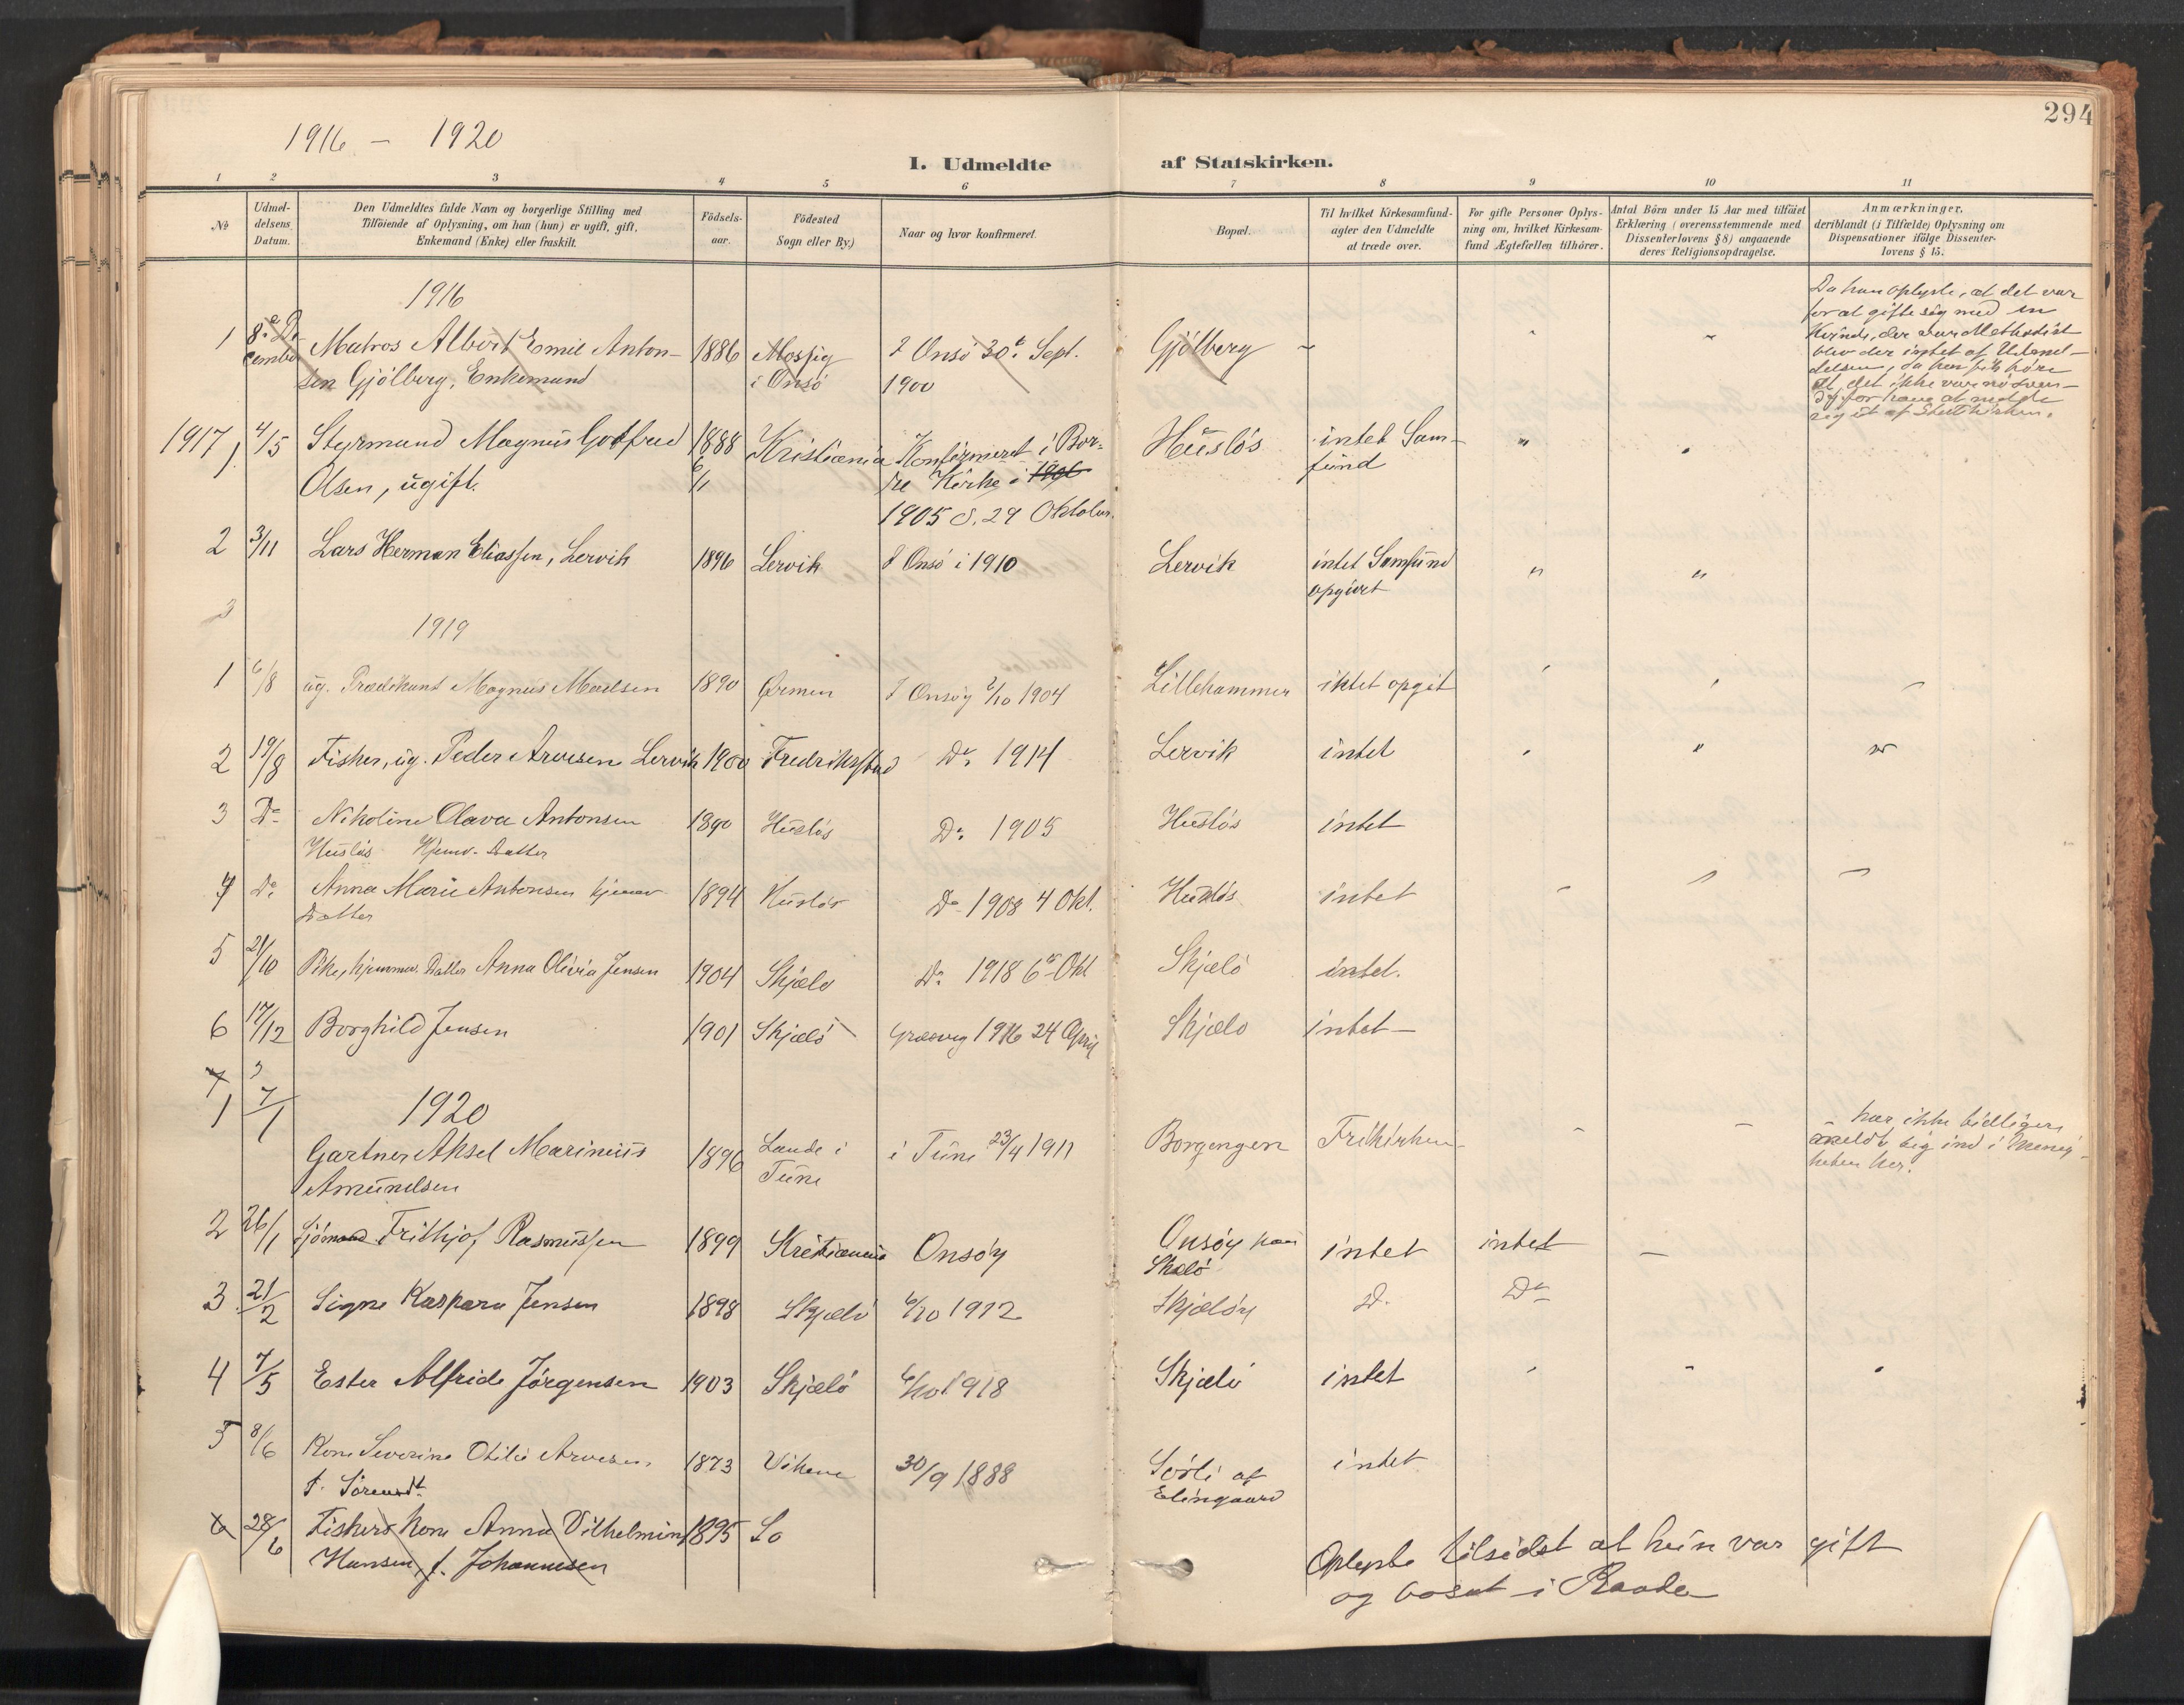 294
1916 – 1920
I. Udmeldte af Statskirken.
1 2 3 4 5 6 7 8 9 10 11
№
Udmel-
delsens
Datum.
Den Udmeldtes fulde Navn og borgerlige Stilling med
Tilföiende af Oplysning, om han (hun) er ugift, gift,
Enkemand (Enke) eller fraskilt.
Födsels-
aar.
Födested
Sogn eller By.)
Naar og hvor konfirmeret.
Bopæl.
Til hvilket Kirkesamfund-
agter den Udmeldte
at træde over.
For gifte Personer Oplys-
ning om, hvilket Kirkesam-
fund Ægtefællen tilhörer.
Antal Börn under 15 Aar med tilföiet
Erklæring (overensstemmende med
Dissenterlovens § 8) angaaende
deres Religionsopdragelse.
Anmærkninger,
deriblandt (i Tilfælde) Oplysning om
Dispensationer ifölge Dissenter-
lovens § 15.
1916
1 8de De
cember Matros Albert Emil Anton- 1886 Mossig I Onsö 30te Sept. Gjölberg –
sen Gjölberg, Enkemand i Onsö 1900
Da han oplyste, at det var
for at gifte sig med en
Kvinde, der var Methodist
blev der intet af Udmel-
delsen, da han fik höre
at det ikke var nödven-
dig for ham at melde
sig ut af Statskirken.
1917 1 4/5 Styrmand Magnus Gotfred 1888 Kristiania Konfirmeret i Bor- Husløs intet Sam- " "
Olsen, ugift. 6/1 re Kirke i 1906 fund
1905 d. 29 Oktober.
2 3/11 Lars Herman Eliassen, Lervik 1896 Lervik I Onsö i 1910 Lervik intet Samfund " "
opgivet
3
1919
1 6/8 ug. Prædikant Magnus Madsen 1890 Ørmen I Onsöy 2/10 1904 Lillehammer intet opgit
2 19/8 Fisker, ug. Peder Arvesen Lervik 1900 Fredrikstad Do 1914 Lervik intet " "
3 Do Nikoline Olava Antonsen 1890 Husløs Do 1905 Husløs intet
Husløs Hjemv. Datter
4 Do Anna Marie Antonsen hjemv 1894 Husløs Do 1908 4 Okt. Husløs intet – –
Datter
5 21/10 Pike, hjemmev. Datter Anna Olivia Jensen 1904 Skjælø Do 1918 6te Okt Skjælö intet.
6 17/12 Borghild Jensen 1901 Skjælö Græsvig 1916 24 April Skjælø intet –
7
1920
1 7/1 Gartner Aksel Marinius 1896 Lande i i Tune 23/4 1911 Borgengen Frikirken – –
Amundsen Tune
har ikke tidligere
meldt sig ind i Menig-
heten her.
2 26/1 Sjömand Frithjof Rasmussen 1899 Kristiania Onsöy Onsöy paa intet intet –
Skælö
3 21/2 Signe Kaspara Jensen 1898 Skjælö 6/10 1912 Skjælöy Do Do
4 7/5 Ester Alfride Jörgensen 1903 Skjælö 6/10 1918 Skjælö intet
5 8/6 Kone Severine Otilie Arvesen, 1873 Vikene 30/9 1888 Sörli af intet
f. Sörensdt. Elingaard
6 28/6 Fiskers Kone Anna Vilhelmine 1895 Lo
Hansen, f. Johannesen
Oplyste tilsidst at hun var gift
og bosat i Raade